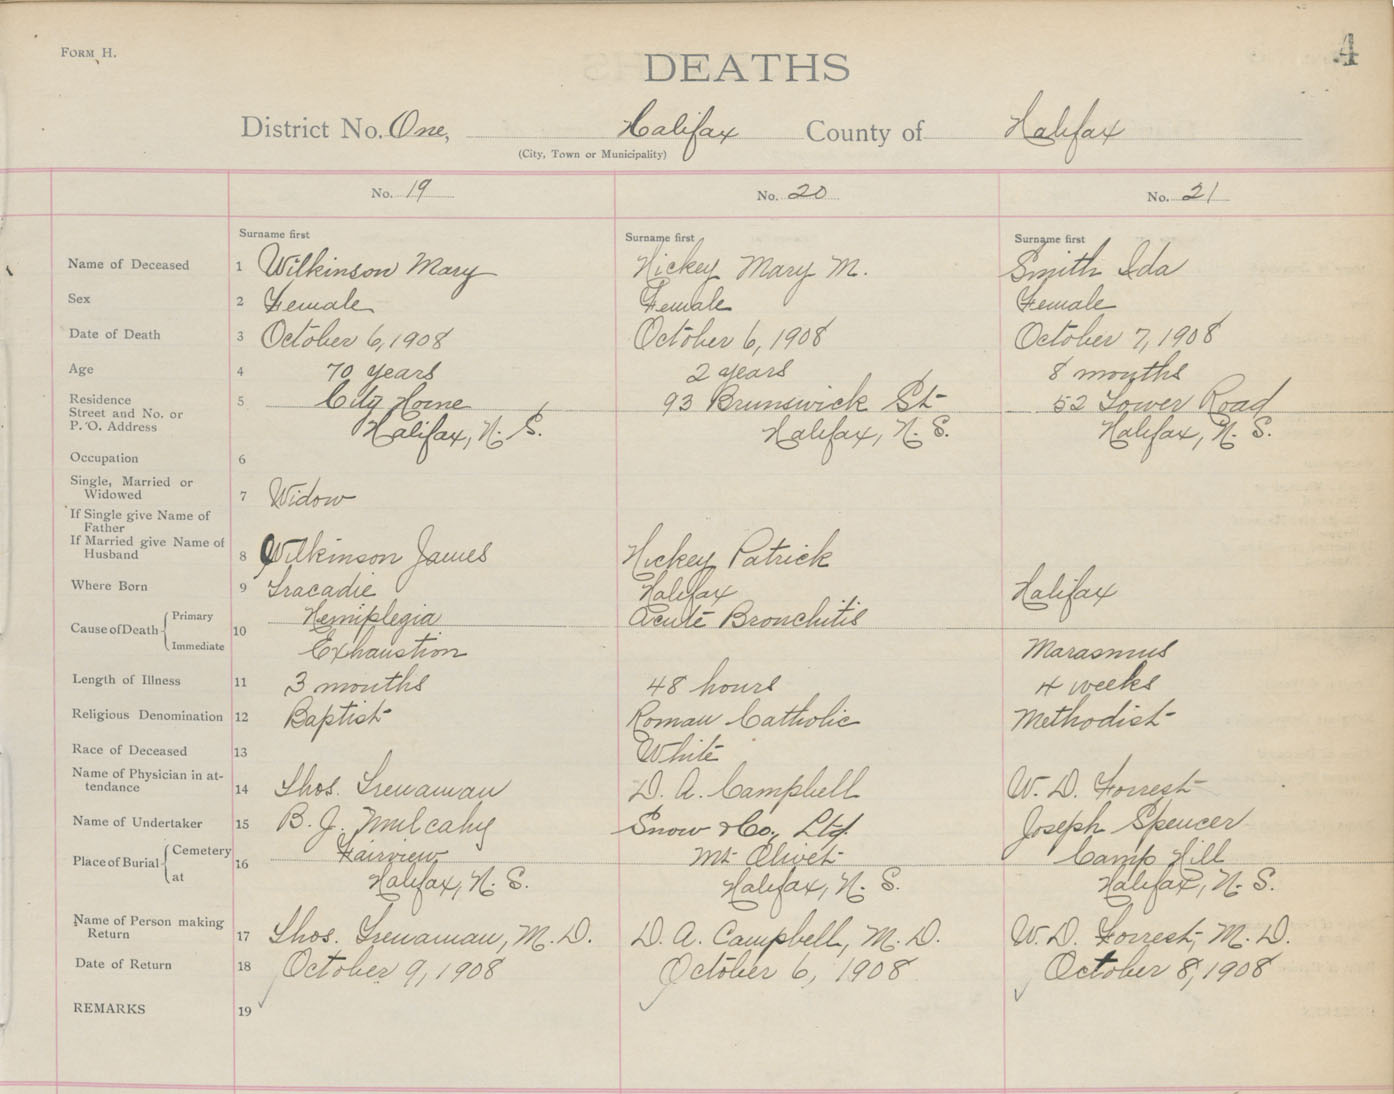 FORM H.
DEATHS
4
District No. One, Halifax County of Halifax
(City, Town or Municipality)
No. 19 No. 20 No. 21
Surname first Surname first Surname first
Name of Deceased 1 Wilkinson Mary Hickey Mary M. Smith Ida
Sex 2 Female Female Female
Date of Death 3 October 6, 1908 October 6, 1908 October 7, 1908
Age 4 70 years 2 years 8 months
Residence 5 City Home 93 Brunswick St 52 Tower Road
Street and No. or
P. O. Address Halifax, N. S. Halifax, N. S. Halifax, N. S.
Occupation 6
Single, Married or
Widowed 7 Widow
If Single give Name of
Father
If Married give Name of
Husband 8 Wilkinson James Hickey Patrick
Where Born 9 Tracadie Halifax Halifax
Cause of Death 10 Primary Hemiplegia Acute Bronchitis
Immediate Exhaustion Marasmus
Length of Illness 11 3 months 48 hours 4 weeks
Religious Denomination 12 Baptist Roman Catholic Methodist
Race of Deceased 13 White
Name of Physician in at-
tendance 14 Thos. Trenaman D. A. Campbell W. D. Forrest
Name of Undertaker 15 B. J. Mulcahy Snow & Co, Ltd. Joseph Spencer
Place of Burial 16 Cemetery Fairview Mt Olivet Camp Hill
at Halifax, N. S. Halifax, N. S. Halifax, N. S.
Name of Person making
Return 17 Thos. Trenaman, M. D. D. A. Campbell, M. D. W. D. Forrest, M. D.
Date of Return 18 October 9, 1908 October 6, 1908 October 8, 1908
REMARKS 19